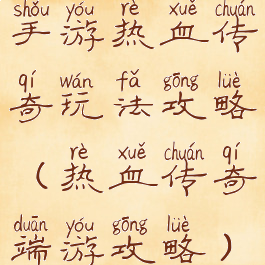 shǒu yóu rè xuè chuán
手游热血传
qí wán fǎ gōng lüè
奇玩法攻略
rè xuě chuán qí
（热血传奇
duān yóu gōng lüè
端游攻略）